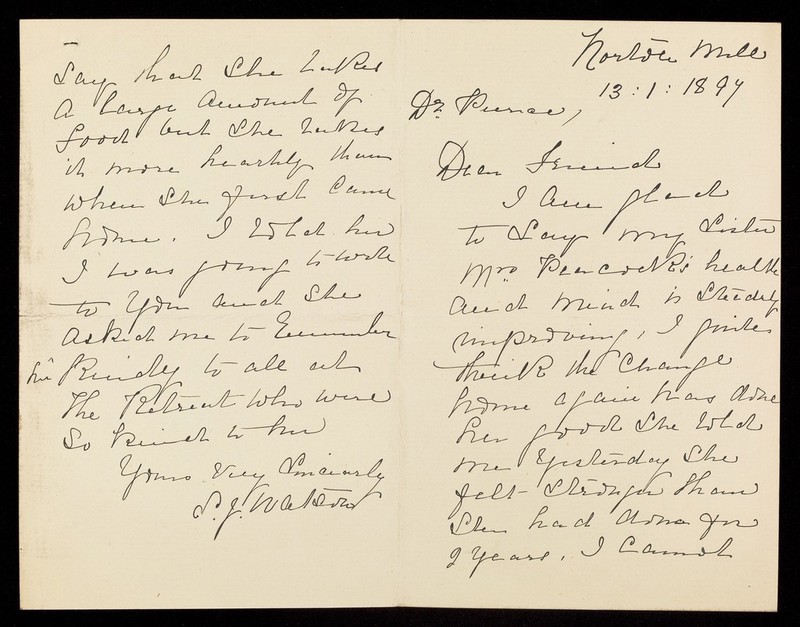 Norton Mill
13 : 1 : 1894
Dr. Pierce,
Dear Friend
I am glad
to say my sister
Mrs Peacock's health
and mind is steadily
improving, I quite
think the change
home again has done
her good she told
me yesterday she
felt stronger than
she had done for
2 years. I cannot
say that she takes
a large amount of
food but she takes
it more heartily than
when she first came
home. I told her
I was going to write
to you and she
asked me to remember
her kindly to all at
the Retreat who were
so kind to her
Yours very sincerely
S. J. Watson